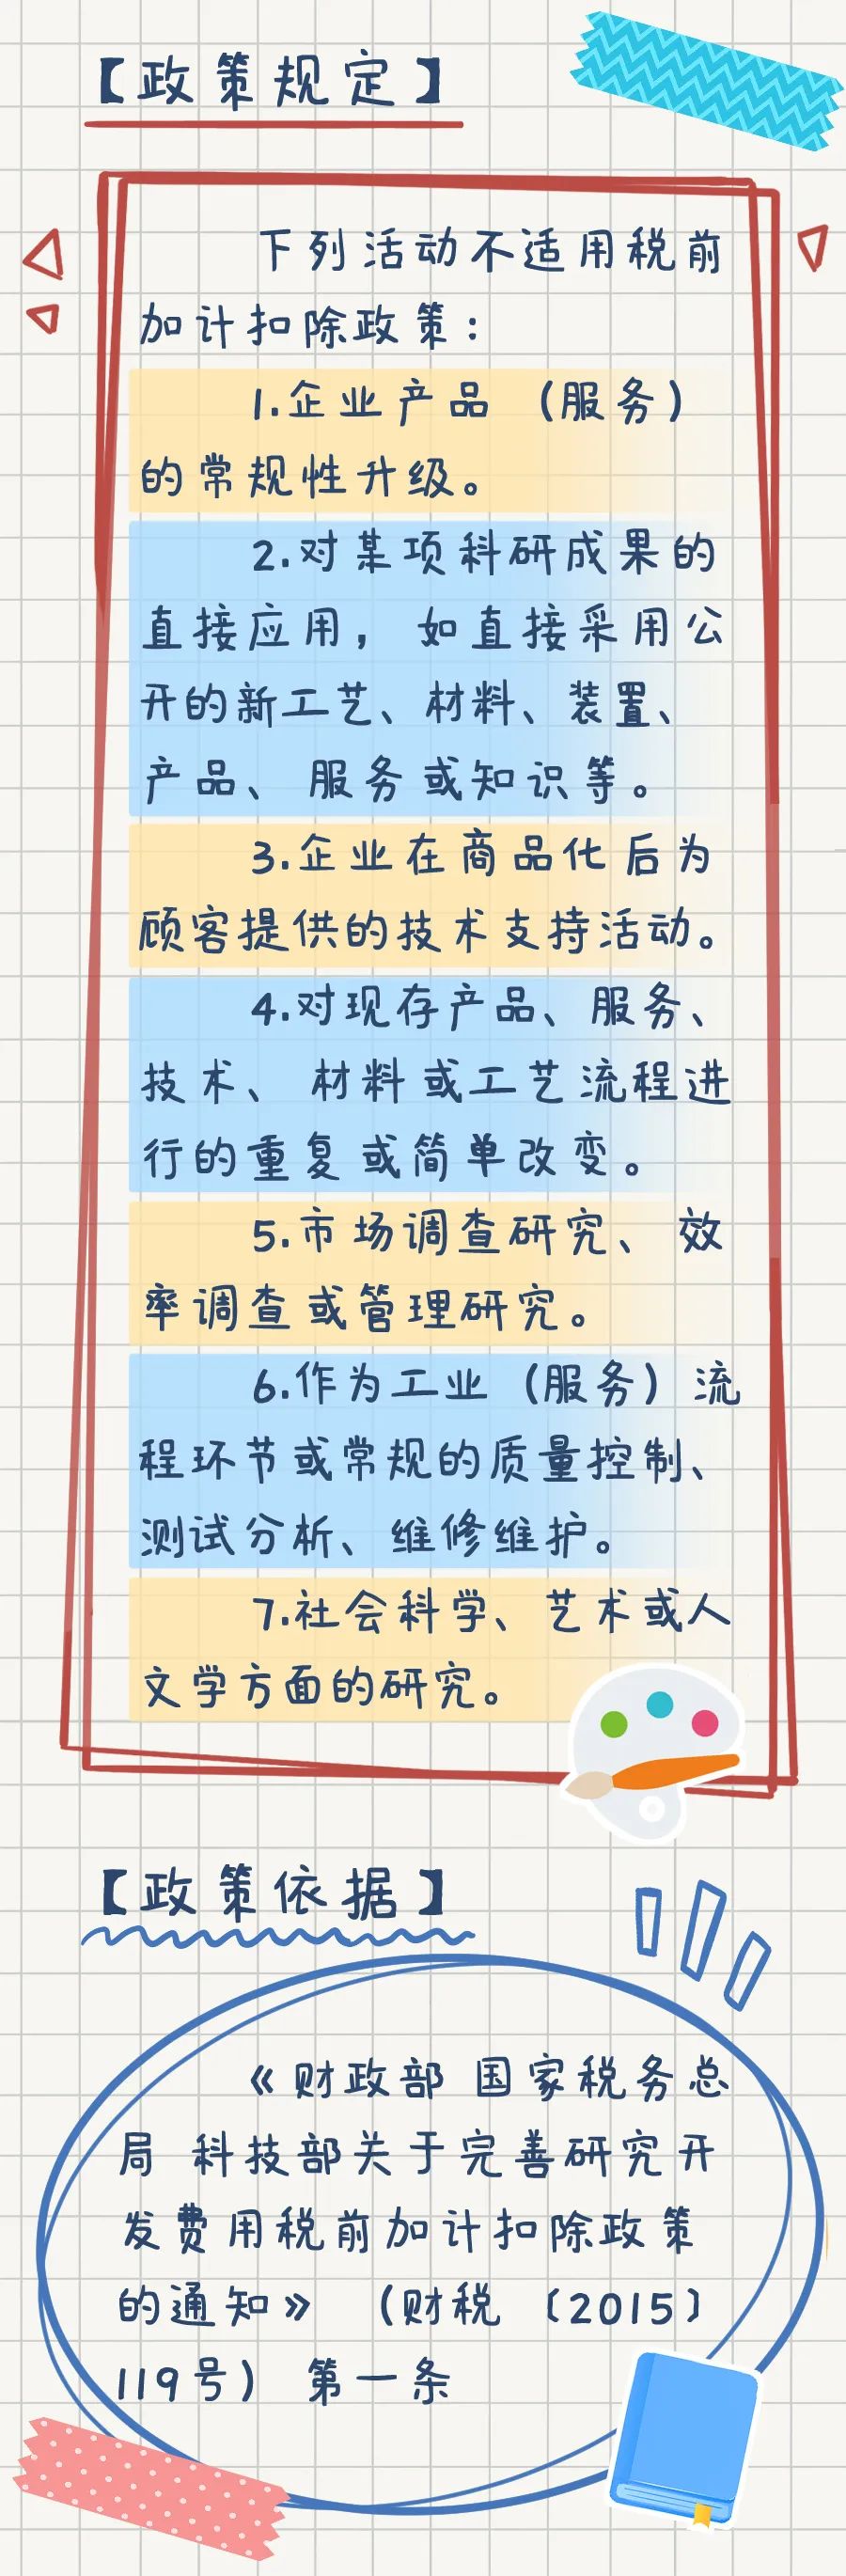 【政策规定】
下列活动不适用税前
加计扣除政策：
1.企业产品（服务）
的常规性升级。
2.对某项科研成果的
直接应用，如直接采用公
开的新工艺、材料、装置、
产品、服务或知识等。
3.企业在商品化后为
顾客提供的技术支持活动。
4.对现存产品、服务、
技术、材料或工艺流程进
行的重复或简单改变。
5.市场调查研究、效
率调查或管理研究。
6.作为工业（服务）流
程环节或常规的质量控制、
测试分析、维修维护。
7.社会科学、艺术或人
文学方面的研究。
【政策依据】
《财政部 国家税务总
局 科技部关于完善研究开
发费用税前加计扣除政策
的通知》（财税〔2015〕
119号） 第一条